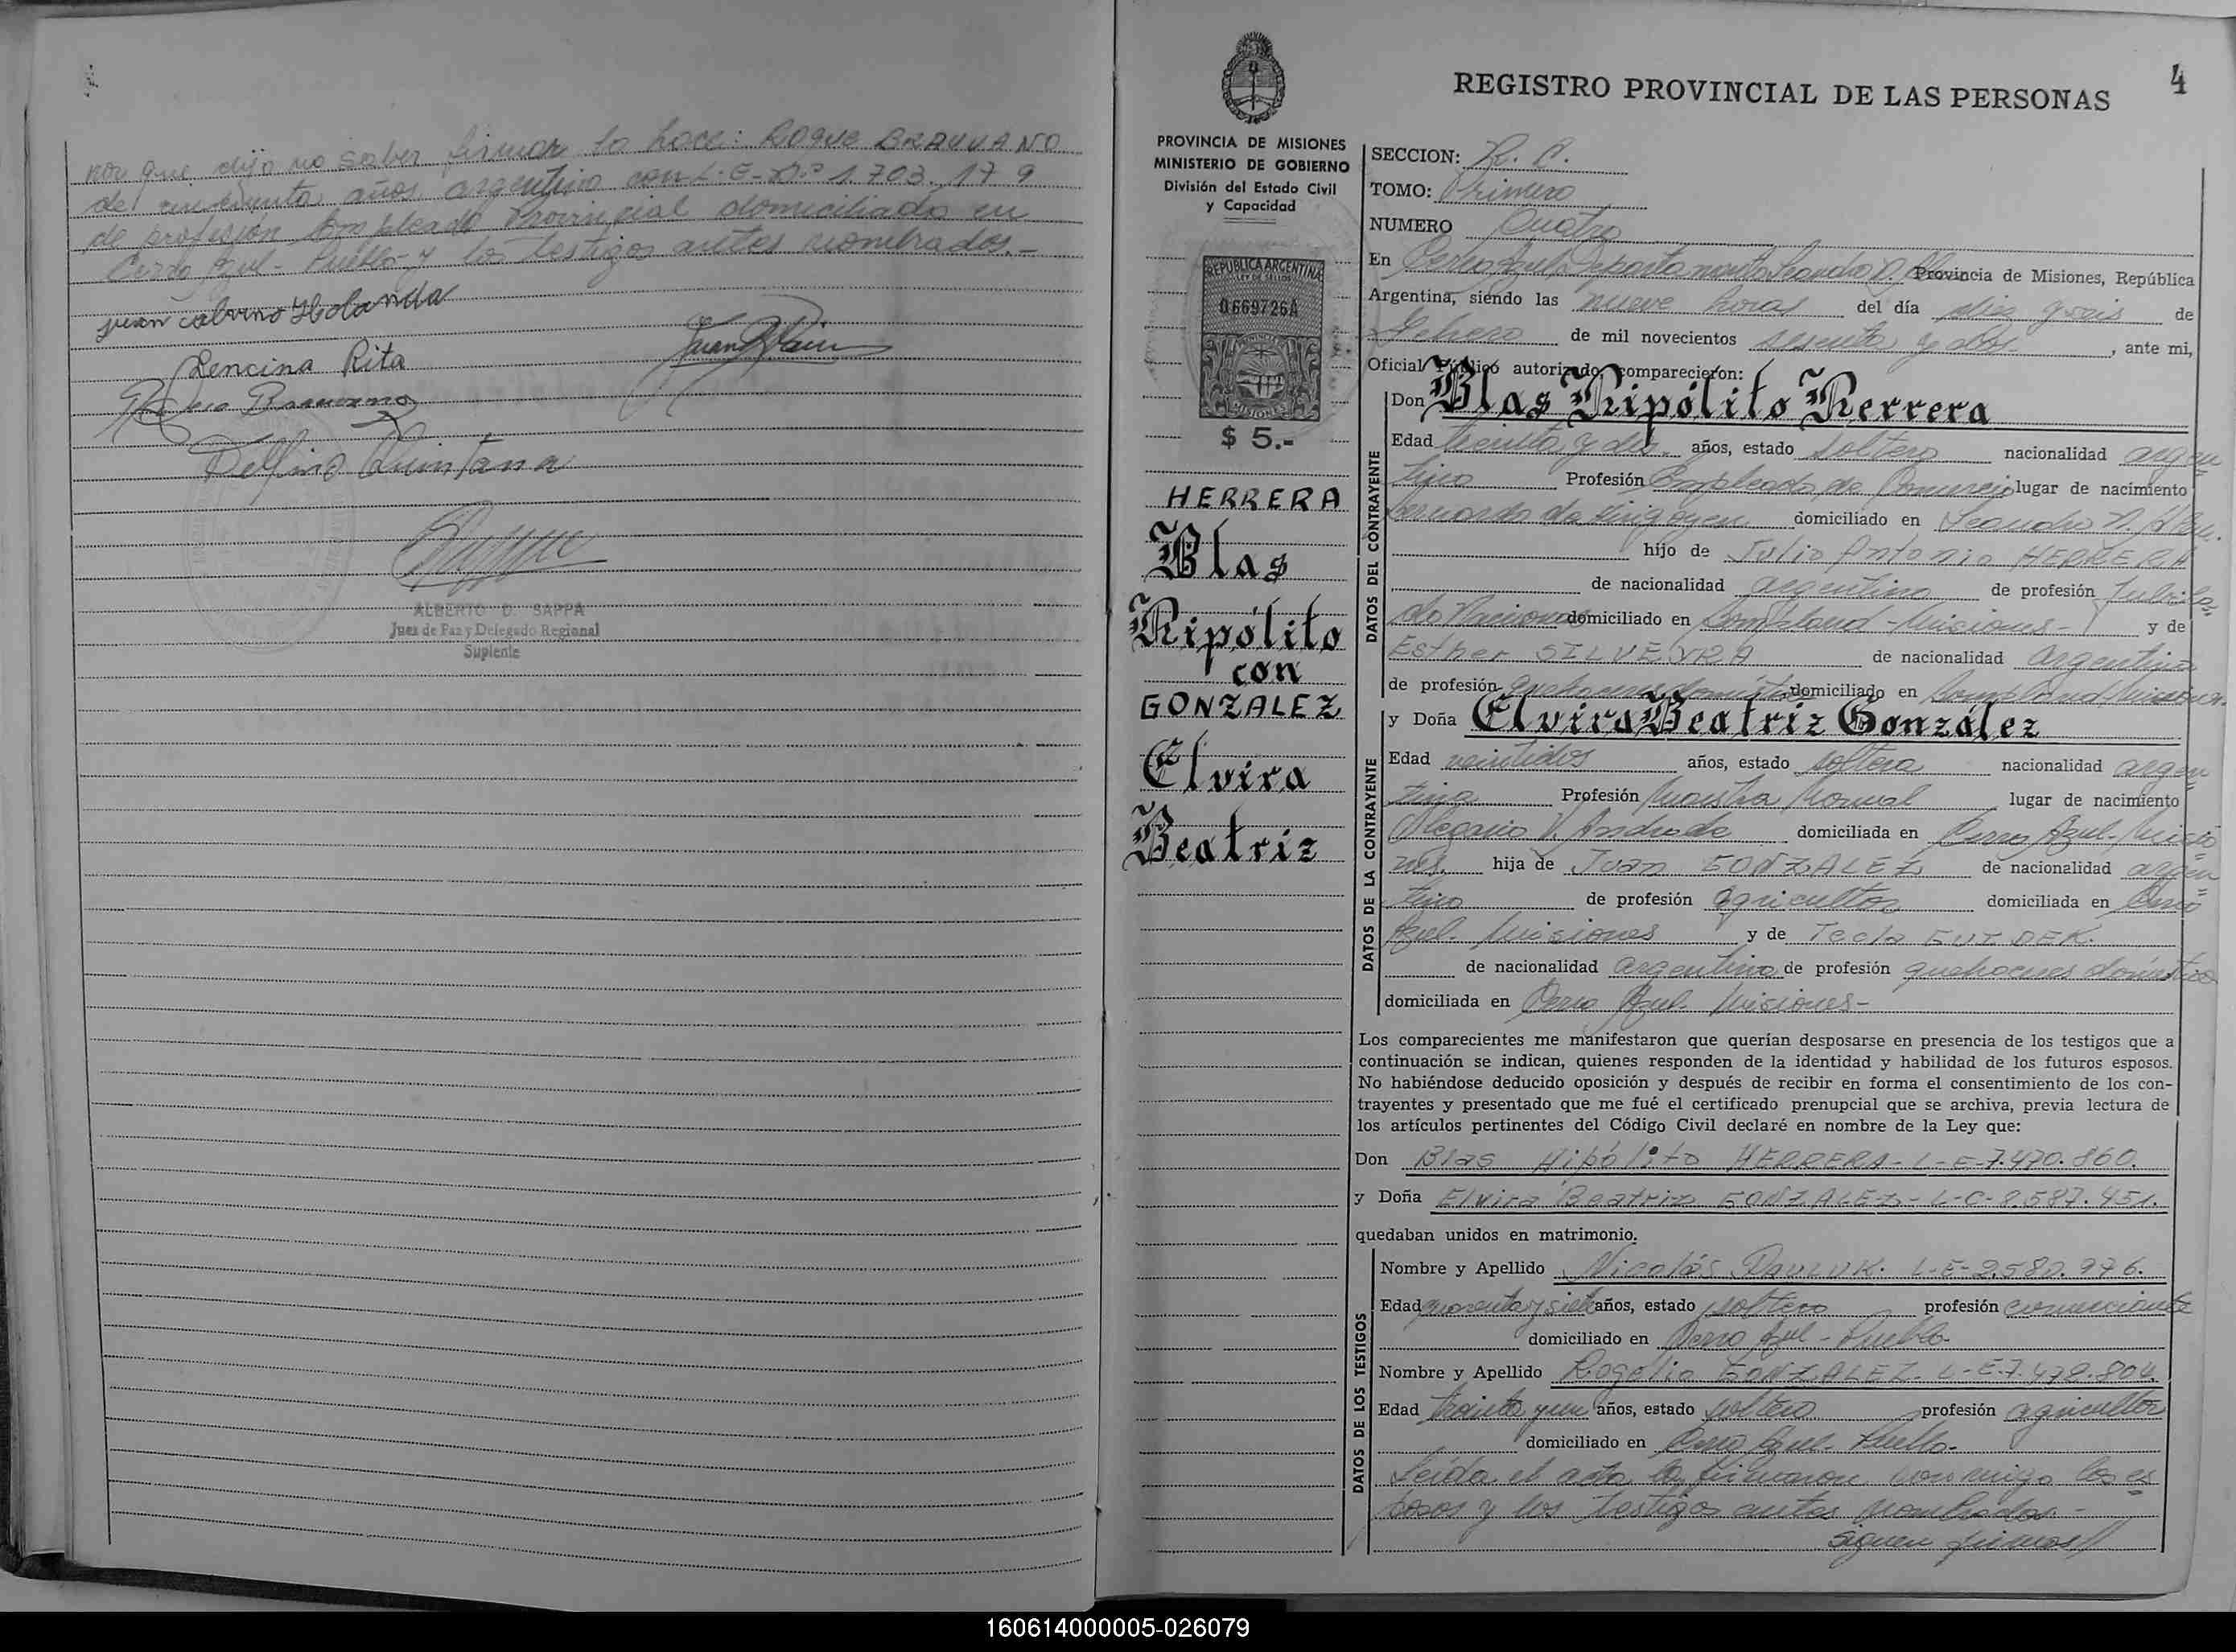 nor que dijo no saber firmar lo hace: ROQUE BRAUVANO
de cincuenta años argentino con L-E-Nº 1.703.179
de profesión Empleado Provincial domiciliado en
Cerro Azul- Pueblo- y los testigos antes nombrados.-
Juan Holanda
Lencina Rita
Delfino Quintana
ALBERTO D. SAPPA
Juez de Paz y Delegado Regional
Suplente
4
REGISTRO PROVINCIAL DE LAS PERSONAS
PROVINCIA DE MISIONES
MINISTERIO DE GOBIERNO
División del Estado Civil
y Capacidad
REPUBLICA ARGENTINA
LEY DE SELLOS
0.669726A
MISIONES
$ 5.-
HERRERA
Blas
Hipólito
con
GONZALEZ
Elvira
Beatriz
SECCION:
TOMO: Primero
NUMERO Cuatro
En Cerro Azul Departamento Leandro N. Provincia de Misiones, República
Argentina, siendo las nueve horas del día diez y seis de
Febrero de mil novecientos sesenta y dos.- , ante mi,
Oficial Público autorizado comparecieron:
DATOS DEL CONTRAYENTE
Don Blas Hipólito Herrera
Edad treinta y dos años, estado soltero nacionalidad argen
tino Profesión Empleado de Comercio lugar de nacimiento
Bernardo de Irigoyen domiciliado en Leandro N. Alem.
hijo de Julio Antonio HERRERA
de nacionalidad argentino de profesión Jubila=
do Nacional domiciliado en Bompland - Misiones- y de
Esther SILVEYRA de nacionalidad argentina
de profesión quehaceres domésticos domiciliado en Bompland Misiones.
DATOS DE LA CONTRAYENTE
y Doña Elvira Beatriz González
Edad veintidos años, estado soltera nacionalidad argen
tina Profesión Maestra Normal lugar de nacimiento
Olegario V. Andrade domiciliada en Cerro Azul- Misio
nes. hija de Juan GONZALEZ de nacionalidad argen=
tino de profesión agricultor domiciliada en Cerro
Azul- Misiones y de Tecla GUIDEK.
de nacionalidad argentina de profesión quehaceres domésticos
domiciliada en Cerro Azul- Misiones-
Los comparecientes me manifestaron que querían desposarse en presencia de los testigos que a
continuación se indican, quienes responden de la identidad y habilidad de los futuros esposos.
No habiéndose deducido oposición y después de recibir en forma el consentimiento de los con-
trayentes y presentado que me fué el certificado prenupcial que se archiva, previa lectura de
los artículos pertinentes del Código Civil declaré en nombre de la Ley que:
Don Blas Hipólito HERRERA- L-E-7.470.860.
y Doña Elvira Beatriz GONZALEZ- L-C-8.587.451.
quedaban unidos en matrimonio.
DATOS DE LOS TESTIGOS
Nombre y Apellido Nicolás PAULUK. L-E-2.580.976.
Edad cuarenta y siete años, estado soltero profesión comerciante
domiciliado en Cerro Azul - Pueblo
Nombre y Apellido Rogelio GONZALEZ- L-E-7.478.804.
Edad treinta y un años, estado soltero profesión agricultor
domiciliado en Cerro Azul- Pueblo.
Leída el acta la firmaron conmigo los es
posos y los testigos antes nombrados.-
Siguen firmas//
160614000005-026079